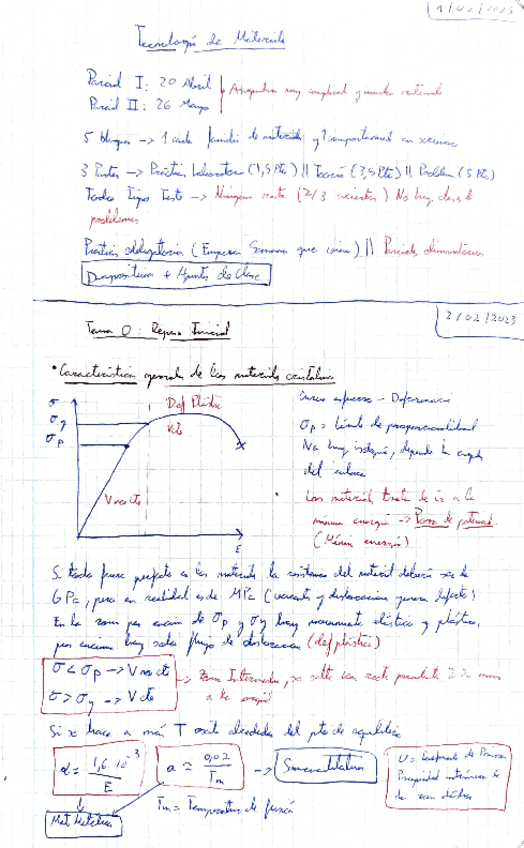 1/02/2023
Tecnología de Materiales
Parcial I: 20 Abril
Parcial II: 26 Mayo
Asignatura muy conceptual y mucho contenido
5 bloques -> 1 cada familia de materiales y 1 comportamiento en servicio
3 Partes -> Práctica Laboratorio (1,5 Pts) || Teoría (3,5 Pts) || Problemas (5 Pts)
Todo Tipo Test -> Ninguna resta (2/3 ) No hay clase de
problemas
Prácticas obligatorias (Empiezan Semana que viene) || Parciales eliminatorios
Diapositivas + Apuntes de Clase
2/02/2023
Tema 0: Repaso Inicial
• Características generales de los materiales cristalinos
σ
σy
σp
Def Plástica
V cte
V no cte
ε
Curva esfuerzo - Deformación
σp = Límite de proporcionalidad
No hay isotropía, depende la
del enlace
Los materiales tratan de ir a la
mínima energía -> Pozos de potencial
(Mínima energía)
Si todo fuera perfecto en los materiales la resistencia del material debería ser de
GPa, pero en realidad es de MPa (vacantes y dislocaciones generan defectos)
En la zona por encima de σp y σy hay movimiento elástico y plástico,
por encima hay solo flujo de dislocaciones (def plástica)
σ < σp -> V no cte
σ > σy -> V cte
-> Zona Intermedia, se
a la
Si se hace a más T oscila alrededor del pto de equilibrio
α = 1,6 · 10⁻³ / E
a = 0,02 / Tm
->
Mat Metálicos
Tm = Temperatura de fusión
υ = Coeficiente de Poisson
Propiedad intrínseca de
la zona elástica